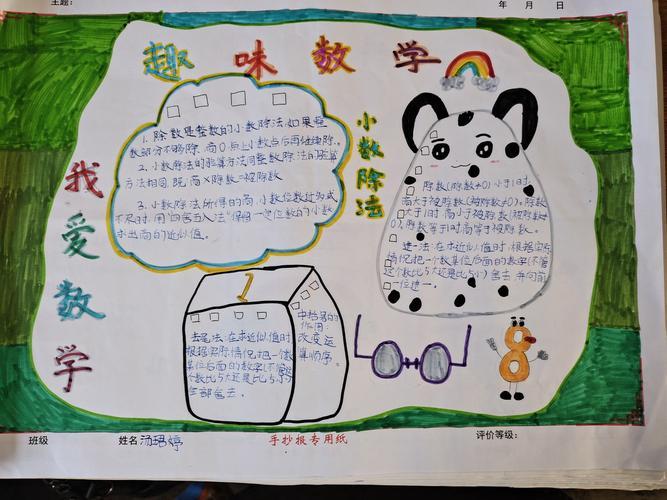 主题：
年 月 日
趣味数学
我爱数学
小数除法
□ □ □ □
1. 除数是整数的小数除法:如果整
数部分不够除,商0,点上小数点后再继续除。
2. 小数除法的验算方法同整数除法的验算
方法相同,既商×除数=被除数
3. 小数除法所得的商,小数位数过多或
不尽时,用"四舍五入法"保留一定位数的小数
求出商的近似值。
除数(除数≠0)小于1时,
商大于被除数(被除数≠0),除数
大于1时,商小于被除数(被除数≠
0),除数等于1时商等于被除数。
进一法:在求近似值时,根据实际
情况把一个数某位后面的数字(不管
这个数比5大还是比5小)舍去,并向前
一位进一。
去尾法:在求近似值时
根据实际情况把一个数
某位后面的数字(不管这
个数比5大还是比5小)
全部舍去。
中括号的
作用:
改变运
算顺序。
8
班级
姓名 汤珺婷
手抄报专用纸
评价等级：